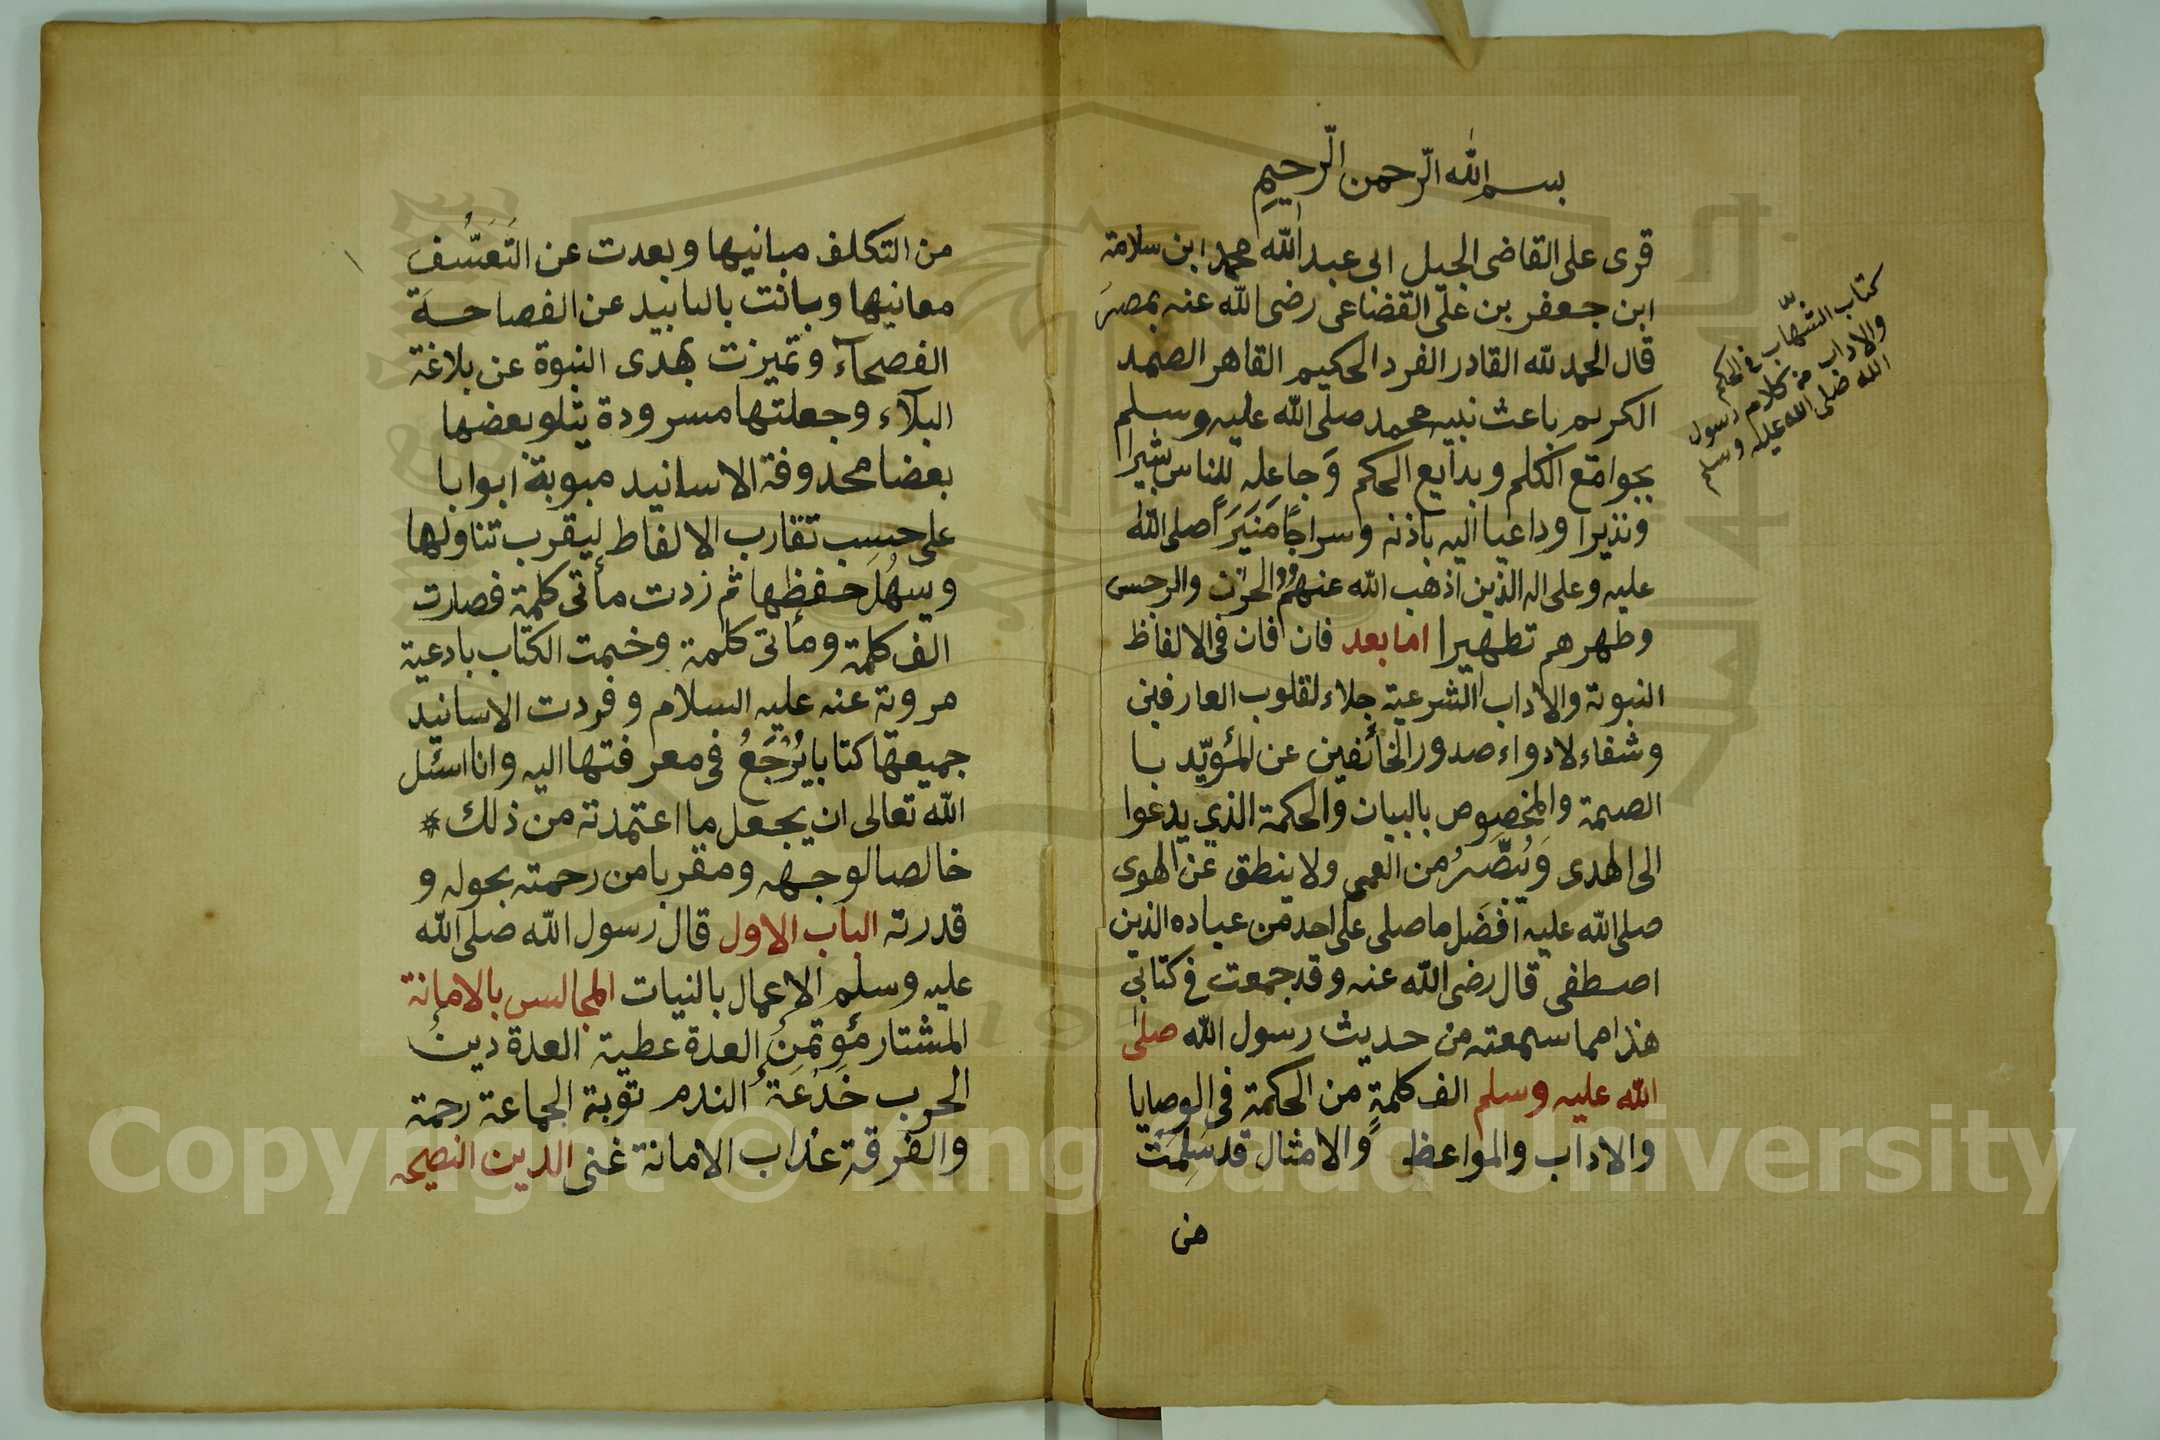 بسم الله الرحمن الرحيم
قرى على القاضى الجيل ابى عبد الله محمد ابن سلامة
ابن جعفر بن على القضاعى رضى الله عنه بمصر
قال الحمد لله القادر الفرد الحكيم القاهر الصمد
الكريم باعث نبيه محمد صلى الله عليه وسلم
بجوامع الكلم وبدايع الحكم وَجاعله للناس بشيرا
ونذيرا وداعيا اليه باذنه وسراجًا مَنيَرَاً صلى الله
عليه وعلى اله الذين اذهب الله عنهم الحزن والرجس
وطهرهم تطهيرا اما بعد فان فان فى الالفاظ
النبوتة والاداب الشرعية جلاء لقلوب العارفين
وشفاء لادواء صدور الخائفين عن المؤيّد با
الصمة والمخصوص بالبيان والحكمة الذي يدعوا
الى الهدى وَيُبصِّرُ من العمى ولا ينطق عن الهوى
صلى الله عليه افضَل ما صلى على احد من عباده الذين
اصطفى قال رضى الله عنه وقد جمعت فى كتابى
هذا مما سمعته من حديث رسول الله صلى
الله عليه وسلم الف كلمةٍ من الحكمة فى الوصايا
والاداب والمواعظ والامثال قد سَلِمَت
من
كتاب الشهاب فى الحكم
والاداب من كلام رسول
الله صلى الله عليه وسلم
من التكلف مبانيها وبعدت عن التَعَسُّف
معانيها وبانت بالتابيد عن الفصاحة
الفصحآء وتميزت بهدى النبوة عن بلاغة
البلآء وجعلتها مسرودة يتلو بعضها
بعضا محذوفة الاسانيد مبوبة ابوابا
على حسب تقارب الالفاط ليقرب تناولها
ويسهُلَ حفظها ثم زدت مأتى كلمة فصارت
الف كلمة ومأتى كلمة وختمت الكتاب بادعية
مروتة عنه عليه السلام وفردت الاسانيد
جميعها كتابا يُرْجَعُ فى معرفتها اليه وانا اسئل
الله تعالى ان يجعل ما اعتمدته من ذلك *
خالصا لوجهه ومقربا من رحمته بحوله و
قدرته الباب الاول قال رسول الله صلى الله
عليه وسلم الاعمال بالنيات المجالس بالامانة
المشتار مؤتمنُ العدة عطية العدة دينُ
الحرب خَدُعَةُ الندم توبة الجماعة رحمة
والفرقة عذاب الامانة غنى الدين النصيحه
Copyright © King Saud University